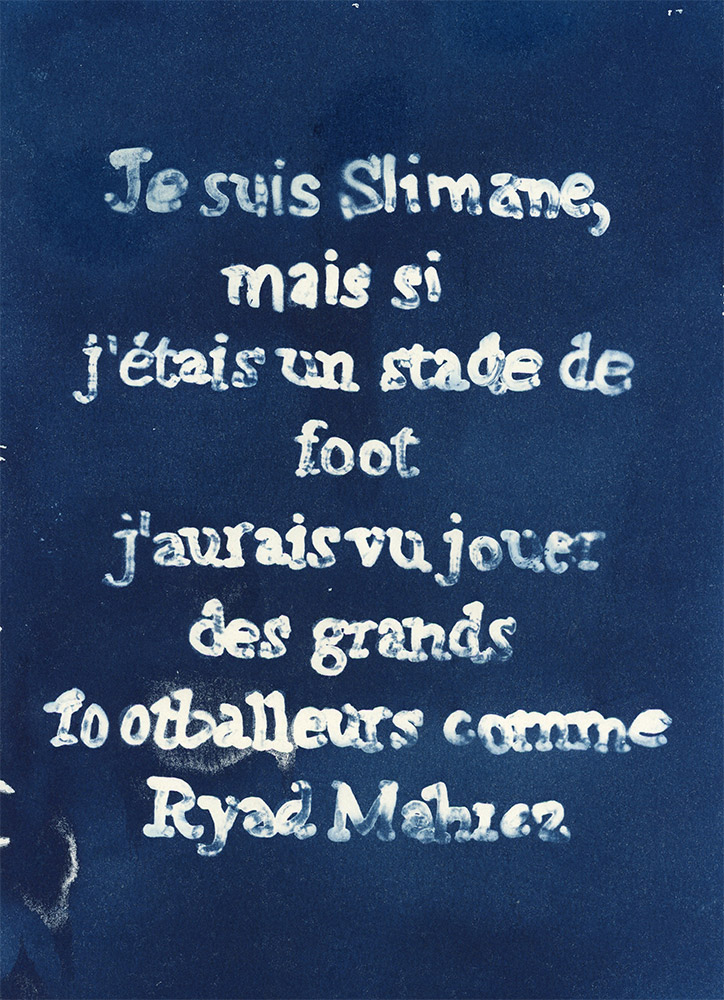 Je suis Slimane,
mais si
j'étais un stade de
foot
j'aurais vu jouer
des grands
footballeurs comme
Ryad Mahrez